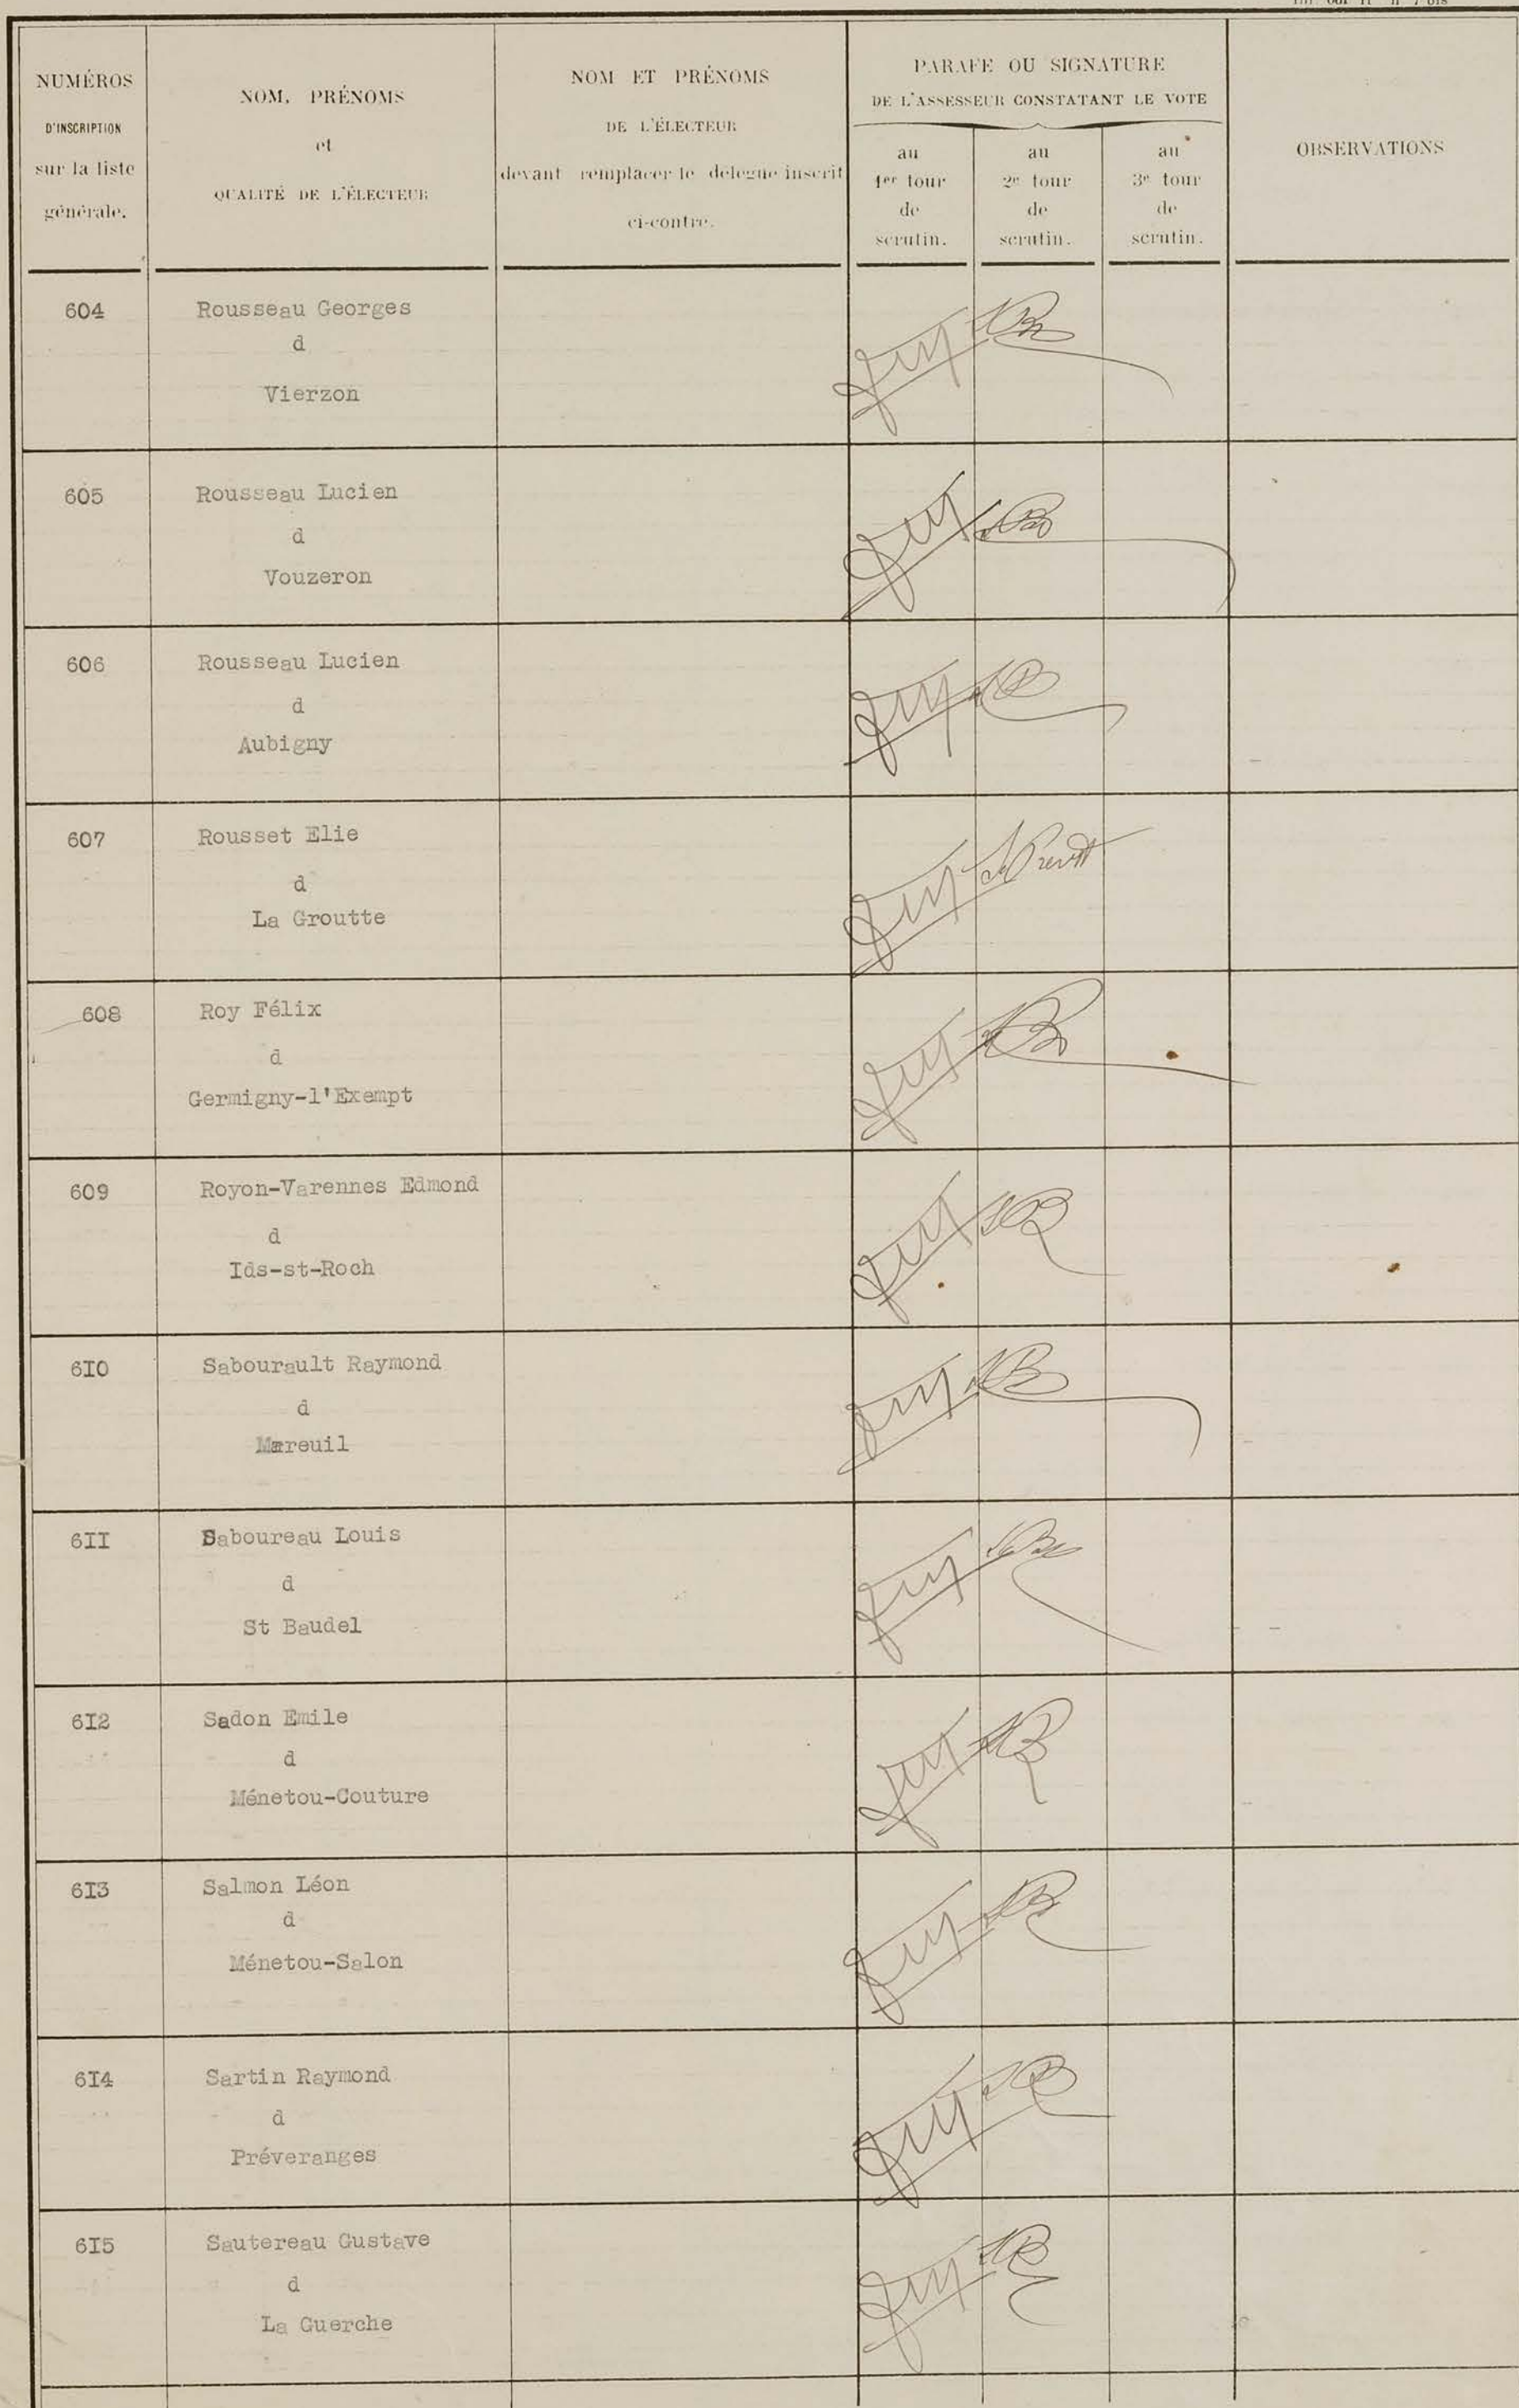 NUMÉROS
D'INSCRIPTION
sur la liste
générale.
NOM, PRÉNOMS
et
QUALITÉ DE L'ÉLECTEUR
NOM ET PRÉNOMS
DE L'ÉLECTEUR
devant remplacer le délégué inscrit
ci-contre.
PARAFE OU SIGNATURE
DE L'ASSESSEUR CONSTATANT LE VOTE
au
1er tour
de
scrutin.
au
2e tour
de
scrutin.
au
3e tour
de
scrutin.
OBSERVATIONS
604 Rousseau Georges
d
Vierzon
605 Rousseau Lucien
d
Vouzeron
606 Rousseau Lucien
d
Aubigny
607 Rousset Elie
d
La Groutte
608 Roy Félix
d
Germigny-l'Exempt
609 Royon-Varennes Edmond
d
Ids-st-Roch
6I0 Sabourault Raymond
d
Mareuil
6II Saboureau Louis
d
St Baudel
6I2 Sadon Emile
d
Ménetou-Couture
6I3 Salmon Léon
d
Ménetou-Salon
6I4 Sartin Raymond
d
Préveranges
6I5 Sautereau Gustave
d
La Guerche